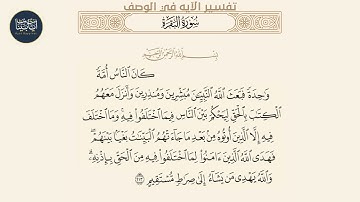 تفسير الآيه في الوصف
سُورَةُ البَقَرَةِ
بِسْمِ اللَّهِ الرَّحْمَٰنِ الرَّحِيمِ
كَانَ النَّاسُ أُمَّةً
وَٰحِدَةً فَبَعَثَ اللَّهُ النَّبِيِّـۧنَ مُبَشِّرِينَ وَمُنذِرِينَ وَأَنزَلَ مَعَهُمُ
الْكِتَٰبَ بِالْحَقِّ لِيَحْكُمَ بَيْنَ النَّاسِ فِيمَا اخْتَلَفُوا۟ فِيهِ وَمَا اخْتَلَفَ
فِيهِ إِلَّا الَّذِينَ أُوتُوهُ مِنۢ بَعْدِ مَا جَآءَتْهُمُ الْبَيِّنَٰتُ بَغْيًۢا بَيْنَهُمْ ۖ
فَهَدَى اللَّهُ الَّذِينَ ءَامَنُوا۟ لِمَا اخْتَلَفُوا۟ فِيهِ مِنَ الْحَقِّ بِإِذْنِهِۦ ۗ
وَاللَّهُ يَهْدِى مَن يَشَآءُ إِلَىٰ صِرَٰطٍ مُّسْتَقِيمٍ ٢١٣